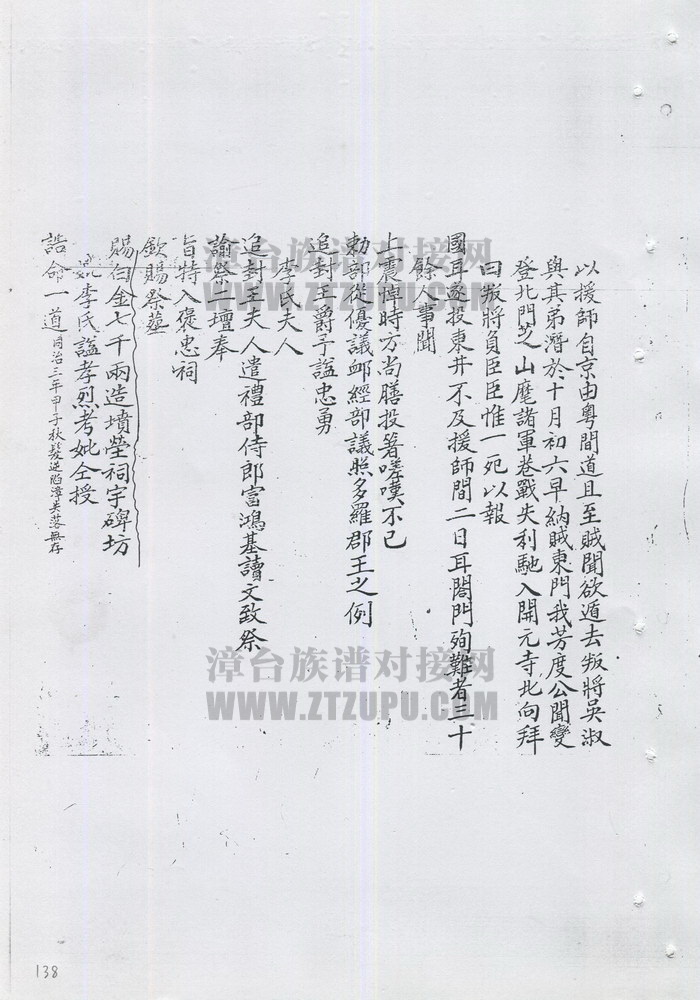 以援師自京由粵間道且至賊聞欲遁去叛將吳淑
與其弟潛於十月初六早納賊東門我芳度公聞變
登北門芝山麾諸軍巷戰失利馳入開元寺北向拜
曰叛將負臣臣惟一死以報
國耳遂投東井不及援師間二日耳闔門殉難者三十
餘人事聞
上震悼時方尚膳投箸嗟嘆不已
勅部從優議卹經部議照多羅郡王之例
追封王爵予諡忠勇
李氏夫人
追封王夫人遣禮部侍郎富鴻基讀文致祭
諭祭二壇奉
旨特入褒忠祠
欽賜祭塟
賜白金七千兩造墳塋祠宇碑坊
妣李氏謚孝烈考妣仝授
誥命一道同治三年甲子秋髮逆陷漳失落無存
漳台族谱对接网
WWW.ZTZUPU.COM
漳台族谱对接网
WWW.ZTZUPU.COM
138